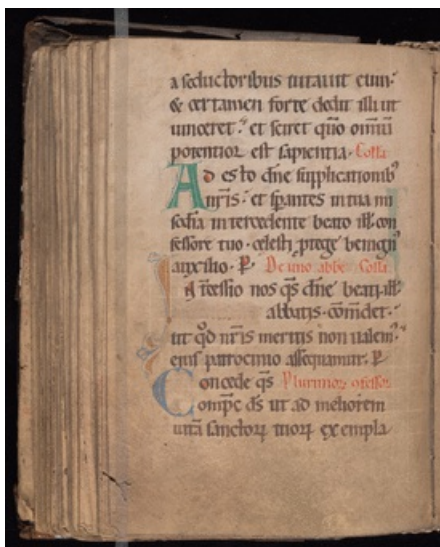 a seductoribus tutauit eum.
& certamen forte dedit illi ut
uinceret. et sciret qm̄ omniū
potentior est sapientia. Coll̄a
Ad esto dn̄e supplicationib᷒
nr̄is. et sperantes in tua mi
sc̄dia intercedente beato ill. con
fessore tuo. celesti ꝓtege benign᷒
auxilio. P. De uno abbe Coll̄a
Intcessio nos qs dn̄e beati ill᷒
abbatis. com̄det.
ut qd̄ nr̄is meritis non ualem᷒.
eius patrocinio assequamur. P
Concede qs Plurimoꝝ ꝯfessoꝝ
omp̄c ds ut ad meliorem
uitā sanctoꝝ tuoꝝ exempla